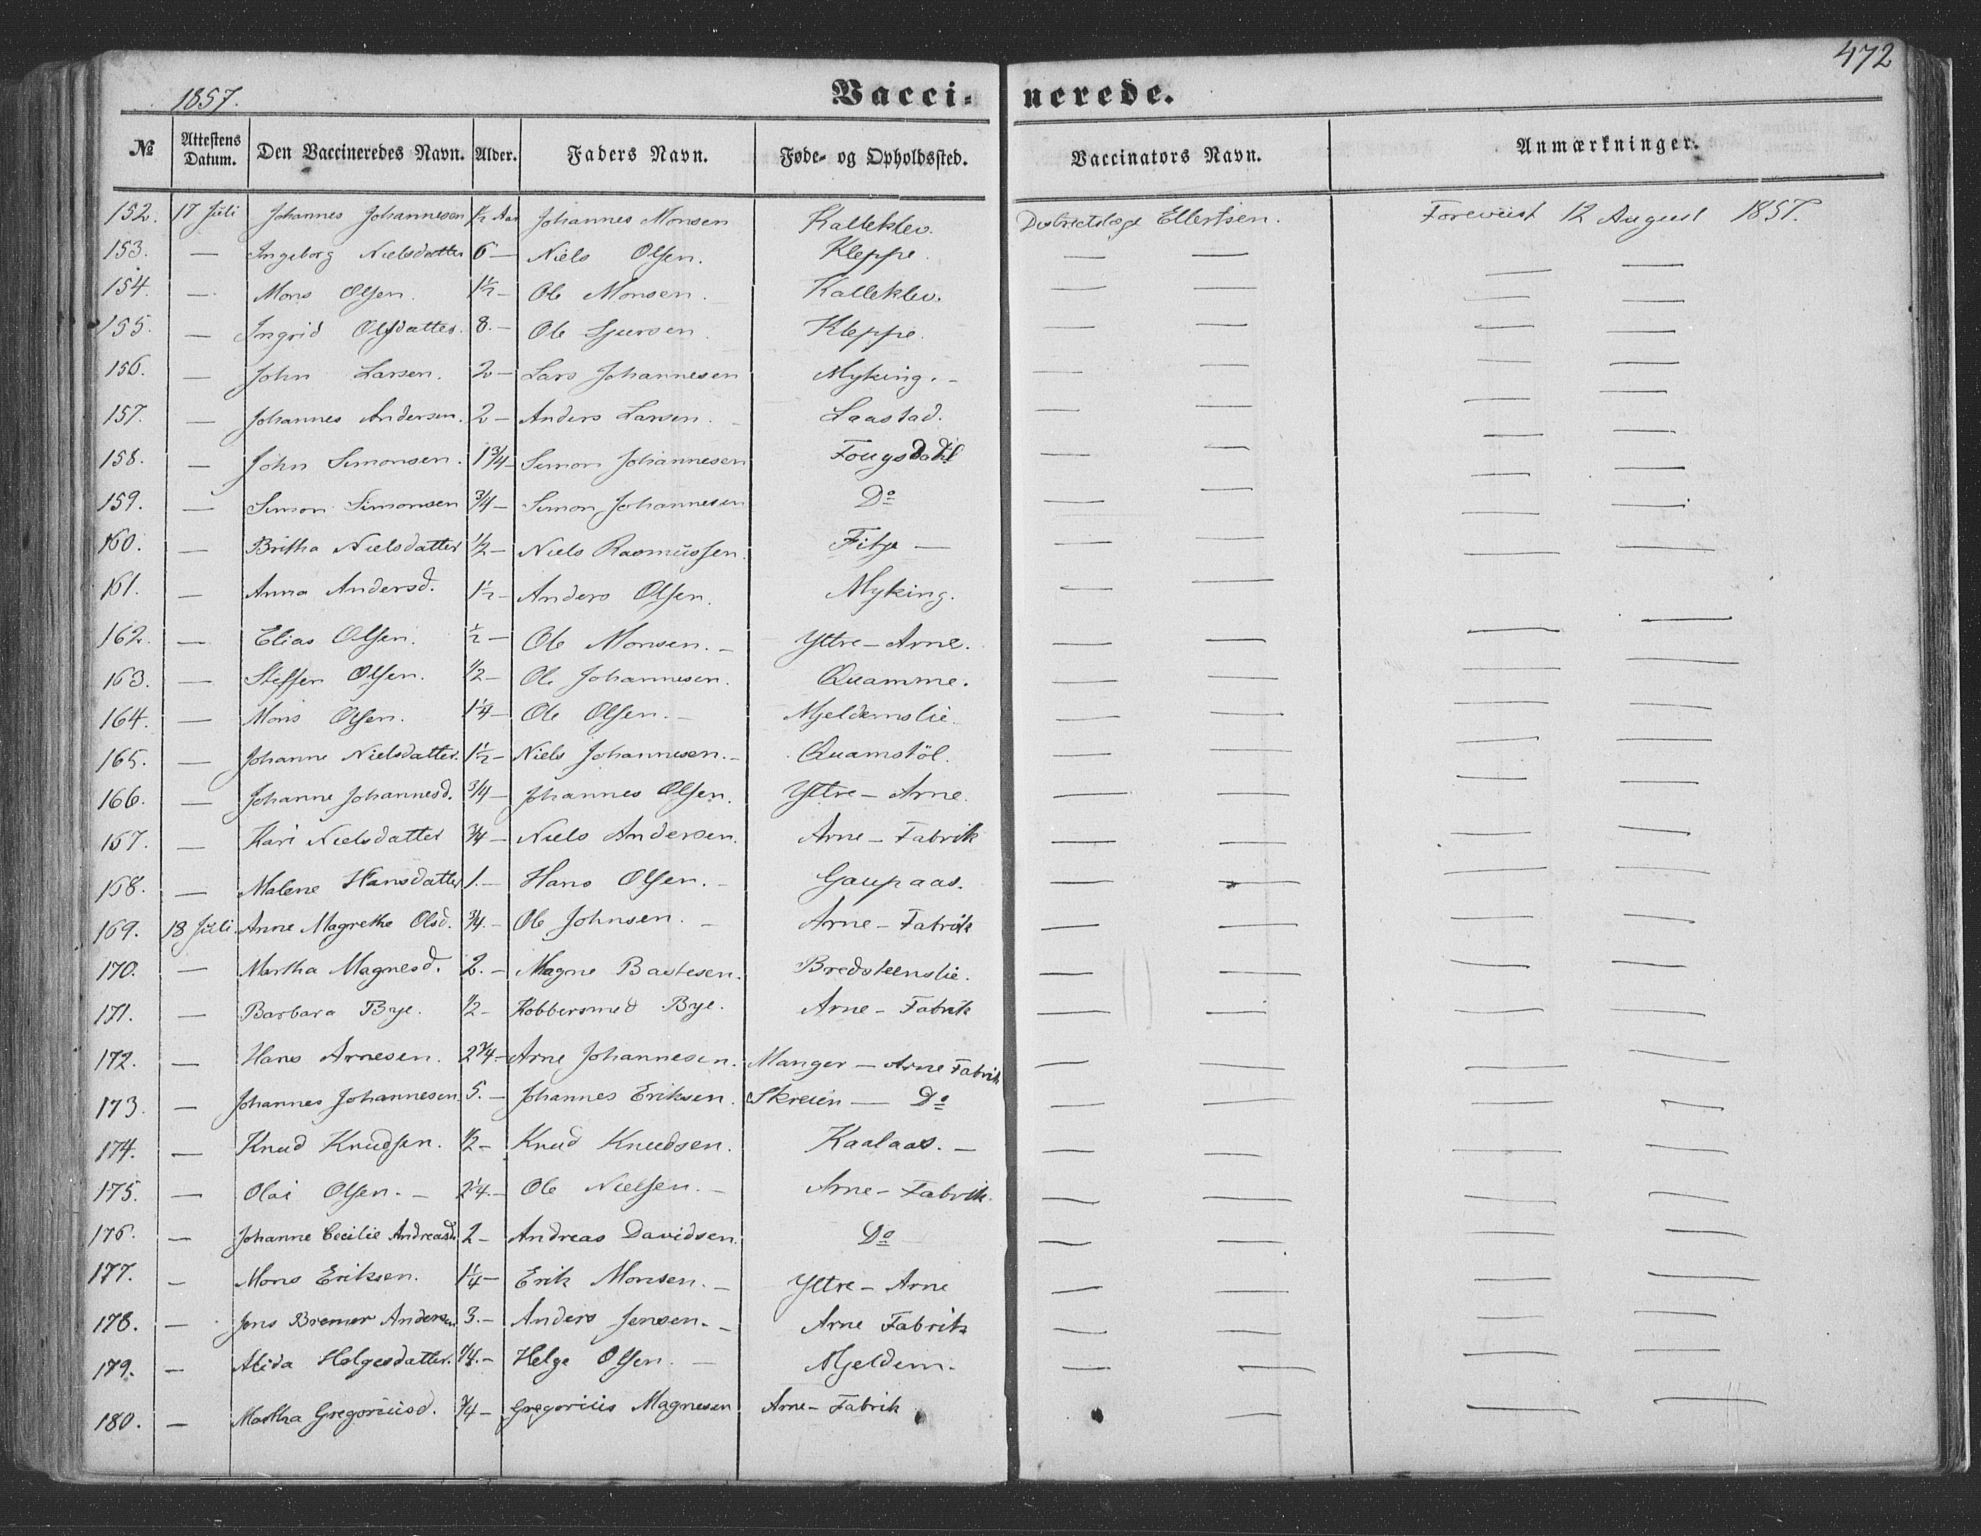 472
1857. Vaccinerede.
№ Attestens Datum. Den Vaccineredes Navn. Alder. Faders Navn. Føde- og Opholdssted. Vaccinators Navn. Anmærkninger.
152. 17 Juli Johannes Johannesen 1½ Aar Johannes Monsen Kalleklev. Districtslæge Ellertsen. Foreviist 12 August 1857.
153. — Ingeborg Nielsdatter 6 — Niels Olsen. Kleppe. — — — —
154. — Mons Olsen. 1½ — Ole Monsen. Kalleklev. — — — —
155. — Ingrid Olsdatter. 8. — Ole Sjursen. Kleppe. — — — —
156. — John Larsen. 2 — Lars Johannesen Myking. — — — — —
157. — Johannes Andersen. 2 — Anders Larsen. — Laastad. — — — —
158. — John Simonsen. 1¾ — Simon Johannesen Fougsdahl — — — —
159. — Simon Simonsen ¾ — Simon Johannesen Do — — — —
160. — Britha Nielsdatter ½ — Niels Rasmussen. Fitje — — — — —
161. — Anna Andersd. 1½ — Anders Olsen. Myking. — — — —
162. — Elias Olsen. ½ — Ole Monsen. — Yttre-Arne. — — — —
163. — Steffen Olsen. ½ — Ole Johannesen. Quamme. — — — —
164. — Mons Olsen. 1¼ — Ole Olsen. — Mjeldemslie. — — — —
165. — Johanne Nielsdatter. 1½ — Niels Johannesen. — Quamstöl. — — — —
166. — Johanne Johannesd. ¾ — Johannes Olsen. Yttre-Arne. — — — —
167. — Kari Nielsdatter ¾ — Niels Andersen. Arne-Fabrik — — — —
168. — Malene Hansdatter 1. — Hans Olsen. — Gaupaas. — — — —
169. 18 Juli. Anne Magrethe Olsd. ¾. — Ole Johnsen. — Arne-Fabrik — — — —
170. — Martha Magnesd. 2. — Magne Bastesen. Bredsteenslie. — — — —
171. — Barbara Bye. ½ — Kobbersmed Bye. Arne-Fabrik — — — —
172. — Hans Arnesen. 2¾ — Arne Johannesen. Manger — Arne Fabrik — — — —
173. — Johannes Johannesen 5. — Johannes Eriksen. Skreien — Do — — — —
174. — Knud Knudsen. ½ — Knud Knudsen. Kaalaas. — — — — —
175. — Olai Olsen. — 2¼. — Ole Nielsen. — Arne-Fabrik. — — — —
176. — Johanne Cecilie Andreasd. 2 — Andreas Davidsen. Do — — — —
177. — Mons Eriksen. 1¼ — Erik Monsen. — Yttre-Arne — — — —
178. — Jens Bremer Andersen 3. — Anders Jensen. — Arne Fabrik — — — —
179. — Alida Helgesdatter. ¼. — Helge Olsen. — Mjeldem. — — — —
180. — Martha Gregoriusd. ¾ — Gregorius Magnesen Arne-Fabrik — — —